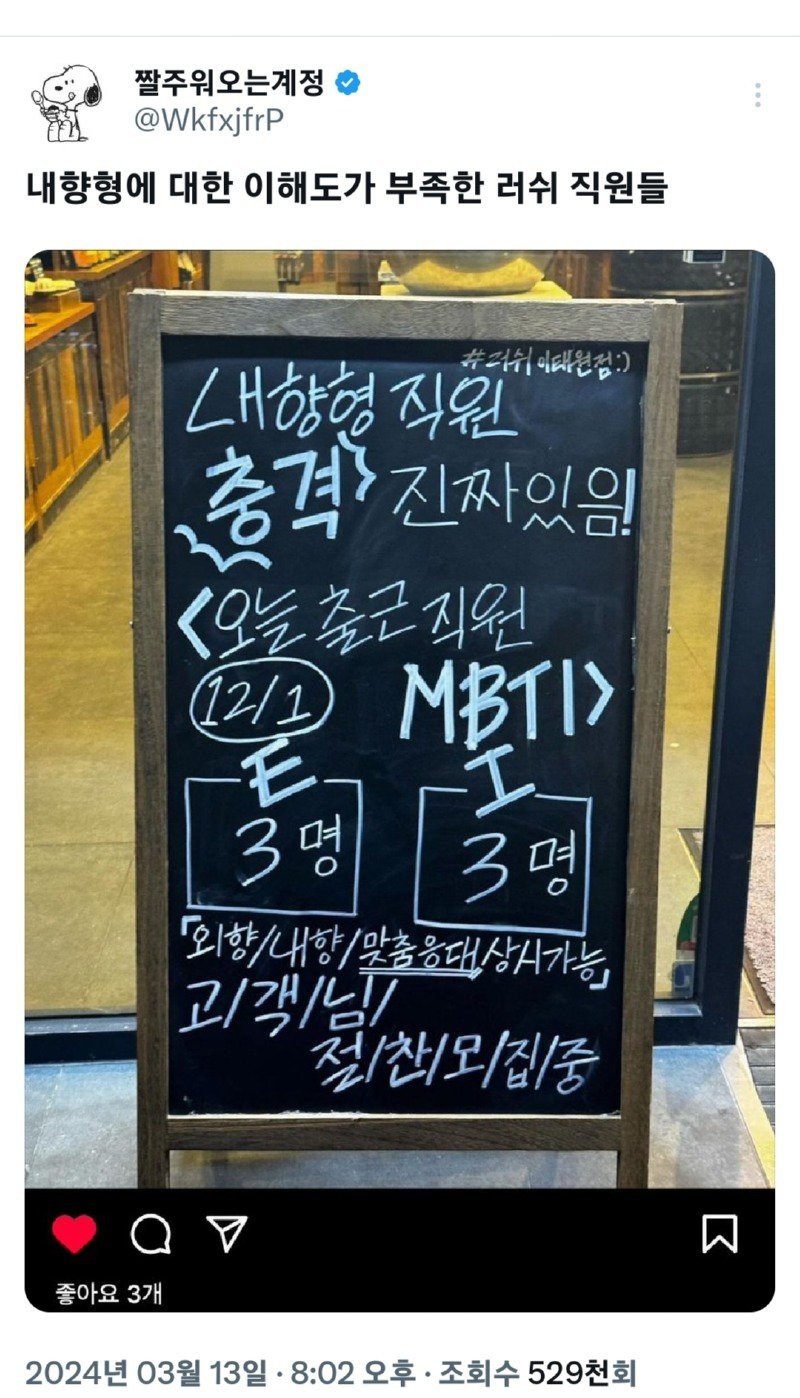 짤주워오는계정
@WkfxjfrP
내향형에 대한 이해도가 부족한 러쉬 직원들
#러쉬 이태원점:)
내향형 직원
충격 진짜있음!
<오늘 출근 직원
12/1 MBTI>
E I
3명 3명
「외향/내향/맞춤응대/상시가능」
고/객/님/
절/찬/모/집/중
좋아요 3개
2024년 03월 13일 · 8:02 오후 · 조회수 529천회